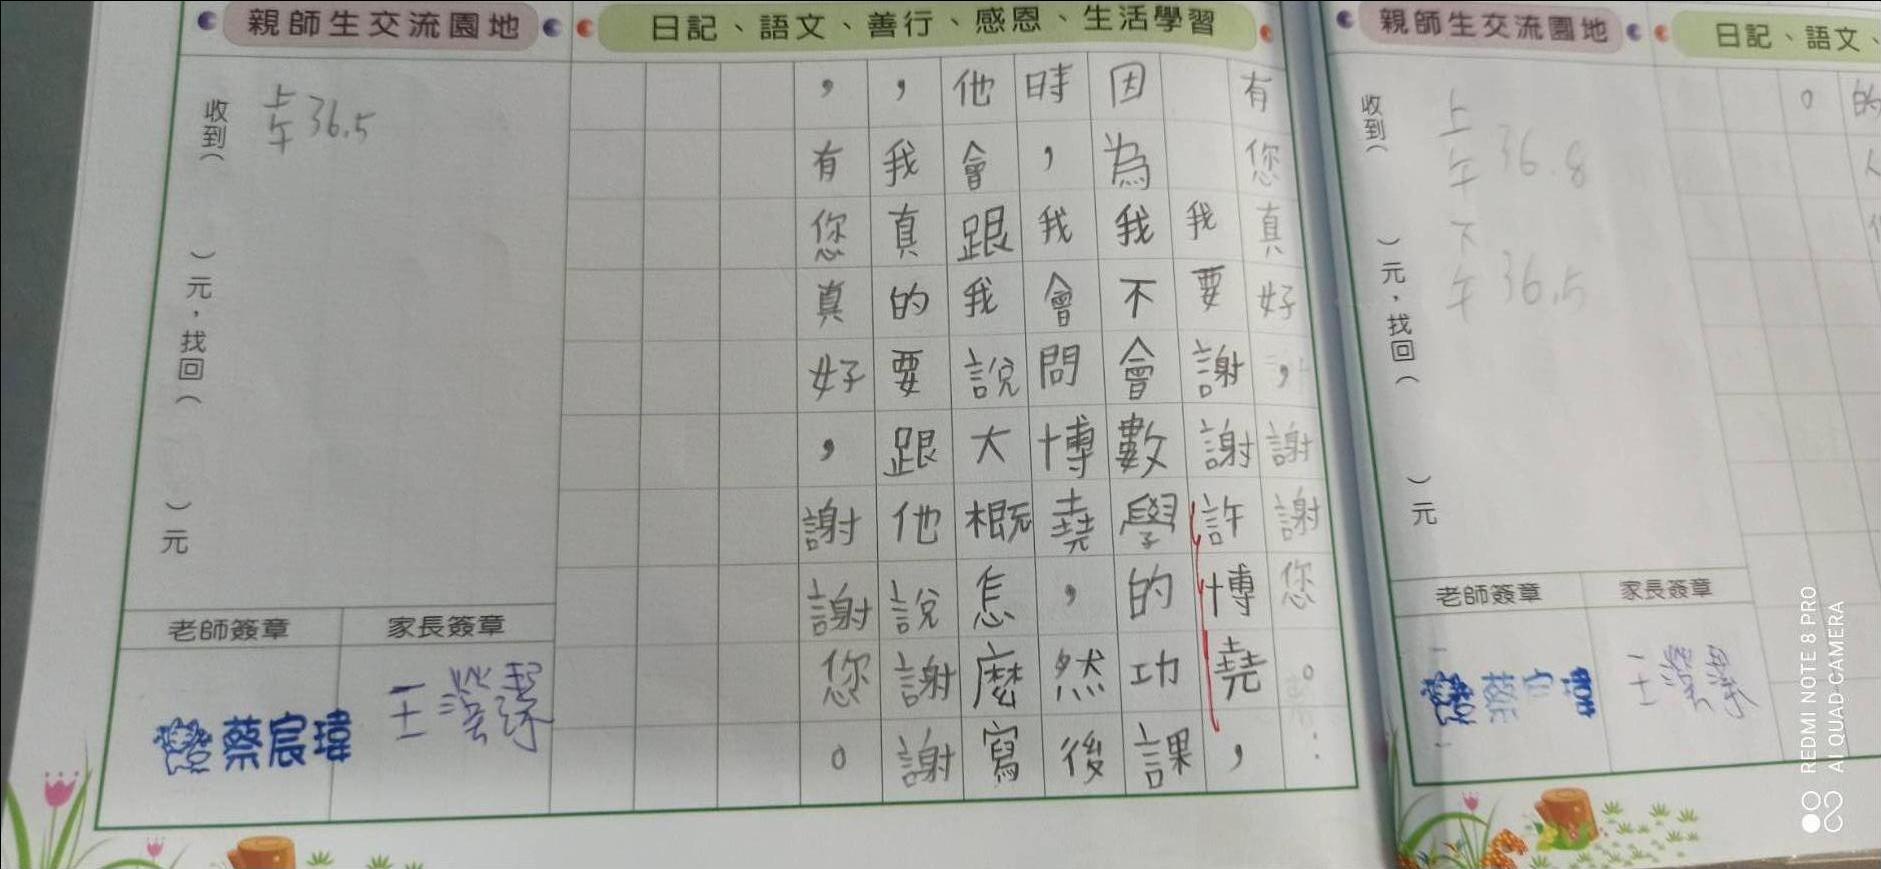 親師生交流園地
日記、語文、善行、感恩、生活學習
有您真好，謝謝您。
我要謝謝許博堯，
因為我不會數學的功課
時，我會問博堯，然後
他會跟我說大概怎麼寫
，我真的要跟他說謝謝
，有您真好，謝謝您。
上午 36.5
收到（ ）元，找回（ ）元
老師簽章
家長簽章
蔡宸瑋
親師生交流園地
日記、語文、
的
。
上午 36.8
下午 36.5
收到（ ）元，找回（ ）元
老師簽章
家長簽章
蔡宸瑋
REDMI NOTE 8 PRO
AI QUAD CAMERA